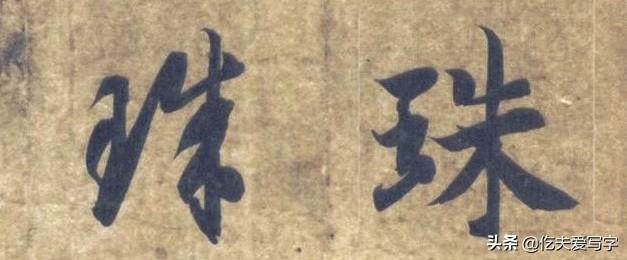 珠 珠
头条 @仡夫爱写字